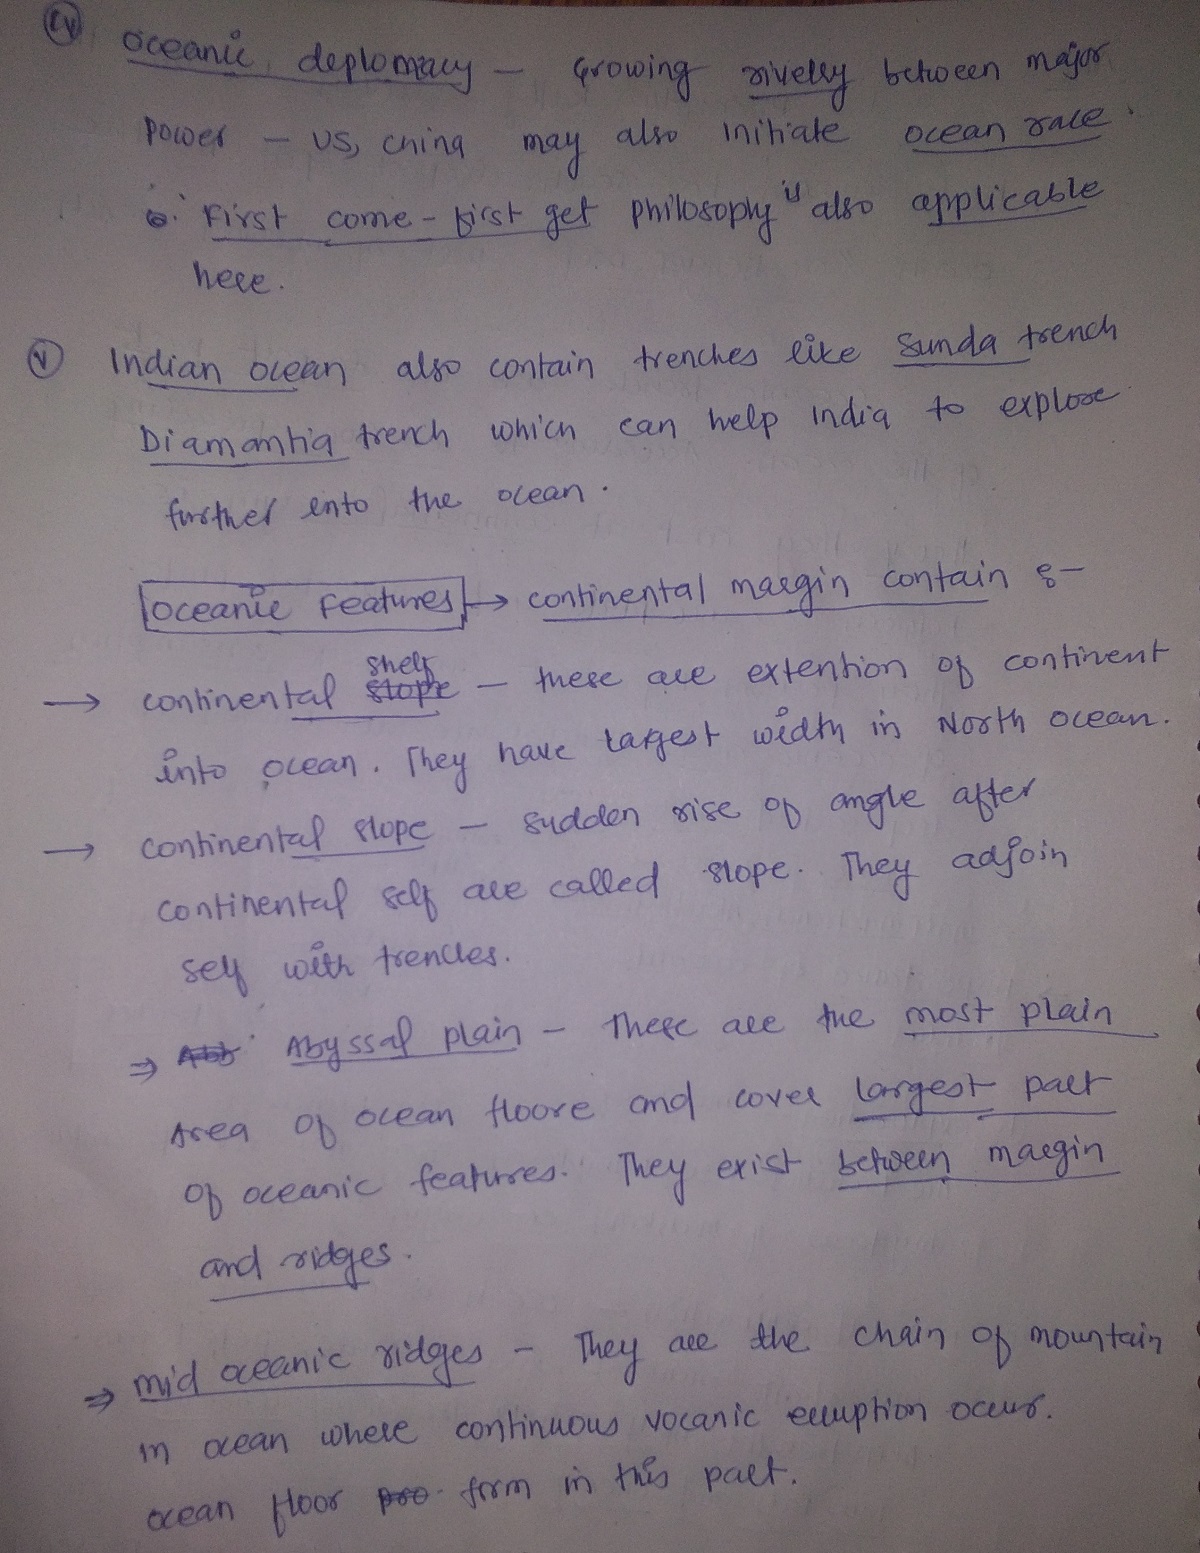 (iv) Oceanic deplomacy – Growing rivelry between major
power – US, China may also initiate ocean race.
First come – first get philosophy is also applicable
here.
(v) Indian ocean also contain trenches like Sunda trench
Diamantia trench which can help India to explore
further into the ocean.
Oceanic Features → continental margin contain :-
→ continental shelf – these are extention of continent
into ocean. They have largest width in North ocean.
→ continental slope – sudden rise of angle after
continental self are called slope. They adjoin
self with trenches.
⇒ Abyssal plain – These are the most plain
Area of ocean floore and cover largest part
of oceanic features. They exist between margin
and ridges.
⇒ mid oceanic ridges – They are the chain of mountain
in ocean where continuous vocanic erruption occur.
ocean floor form in this part.